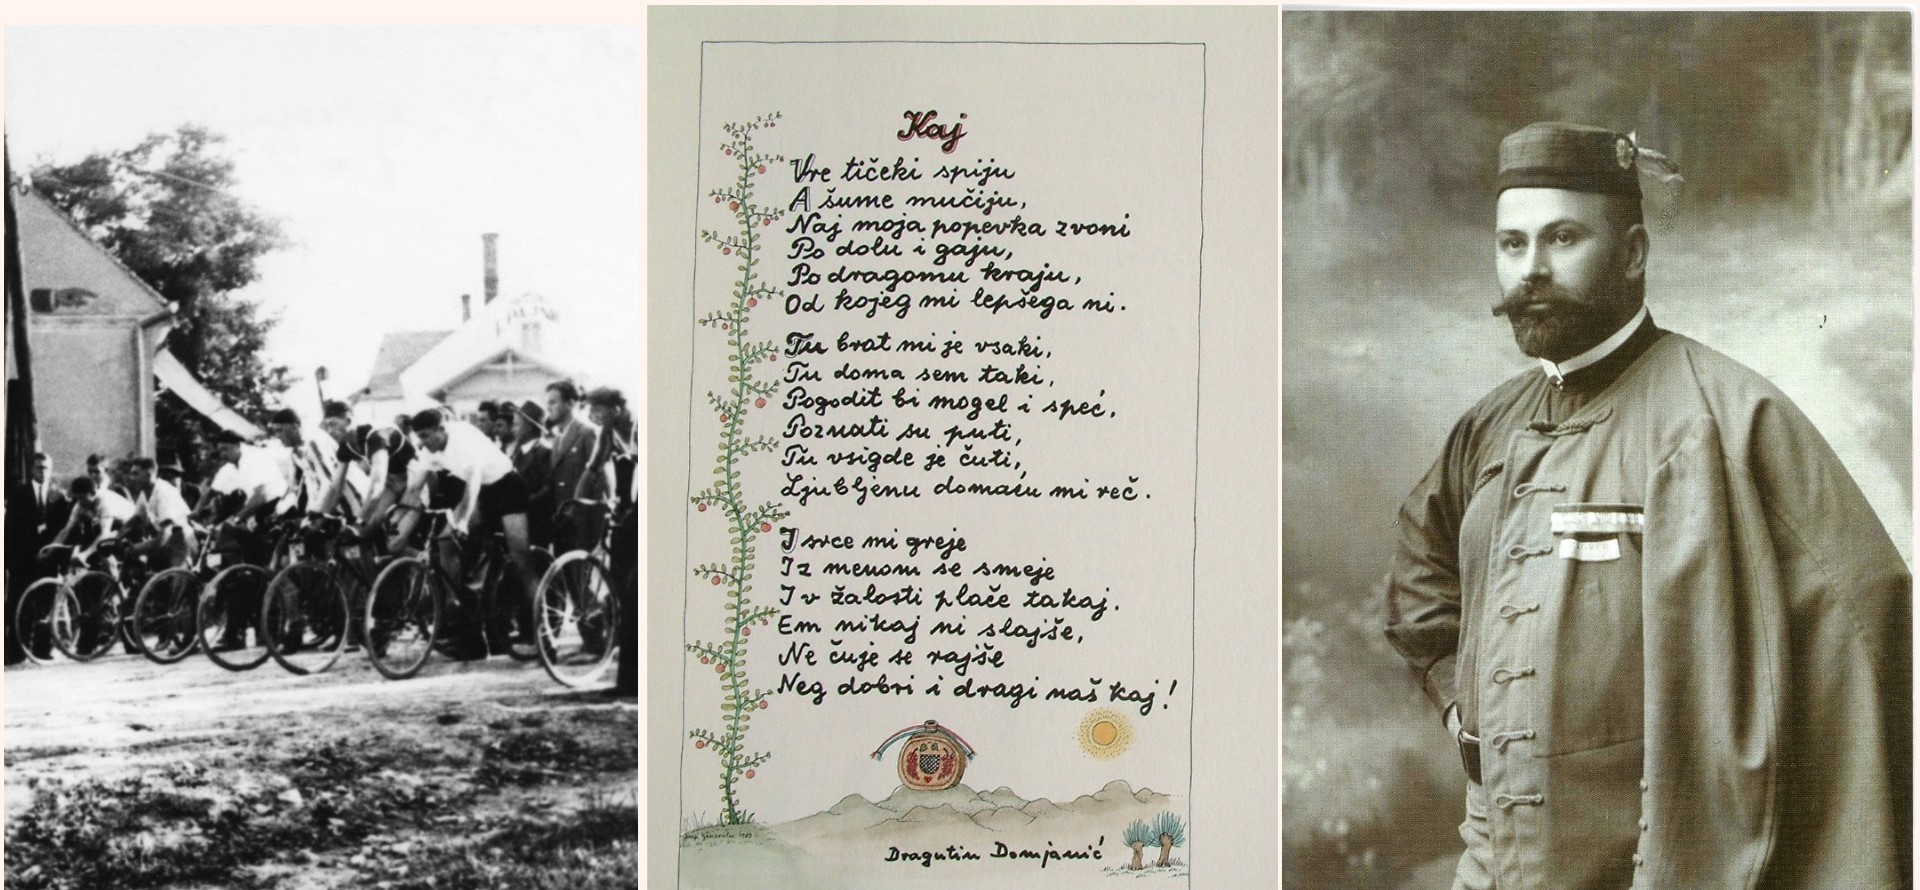 Kaj
Vre tičeki spiju
A šume mučiju,
Naj moja popevka zvoni
Po dolu i gaju,
Po dragomu kraju,
Od kojeg mi lepšega ni.
Tu brat mi je vsaki,
Tu doma sem taki,
Pogodit bi mogel i speć,
Poznati su puti,
Tu vsigde je čuti,
Ljubljenu domaću mi reč.
I srce mi greje
I z menom se smeje
I v žalosti plače takaj.
Em nikaj ni slajše,
Ne čuje se rajše
Neg dobri i dragi naš kaj!
Dragutin Domjanić